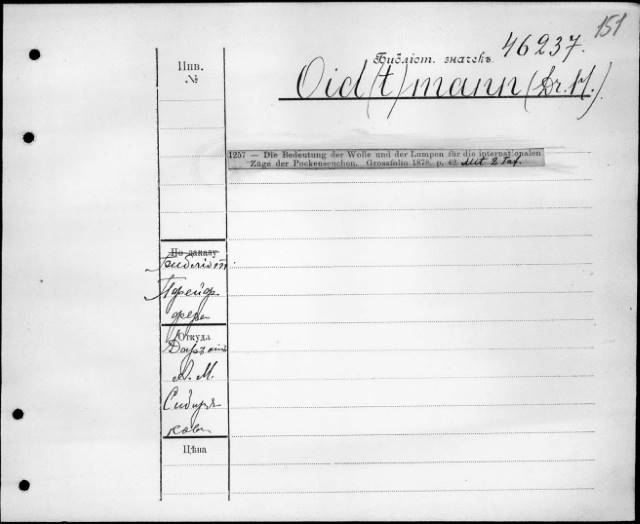 151
Инв.
№
Библіот. значекъ 46237.
Oid(t)mann (Dr. H.)
1257 — Die Bedeutung der Wolle und der Lumpen für die internationalen
Züge der Pockenseuchen. Grossfolio 1878. p. 42 Mit 2 Taf.
По заказу
Библіот.
Пфейф-
фера
Откуда
Даръ
А. М.
Сибиря-
кова
Цѣна